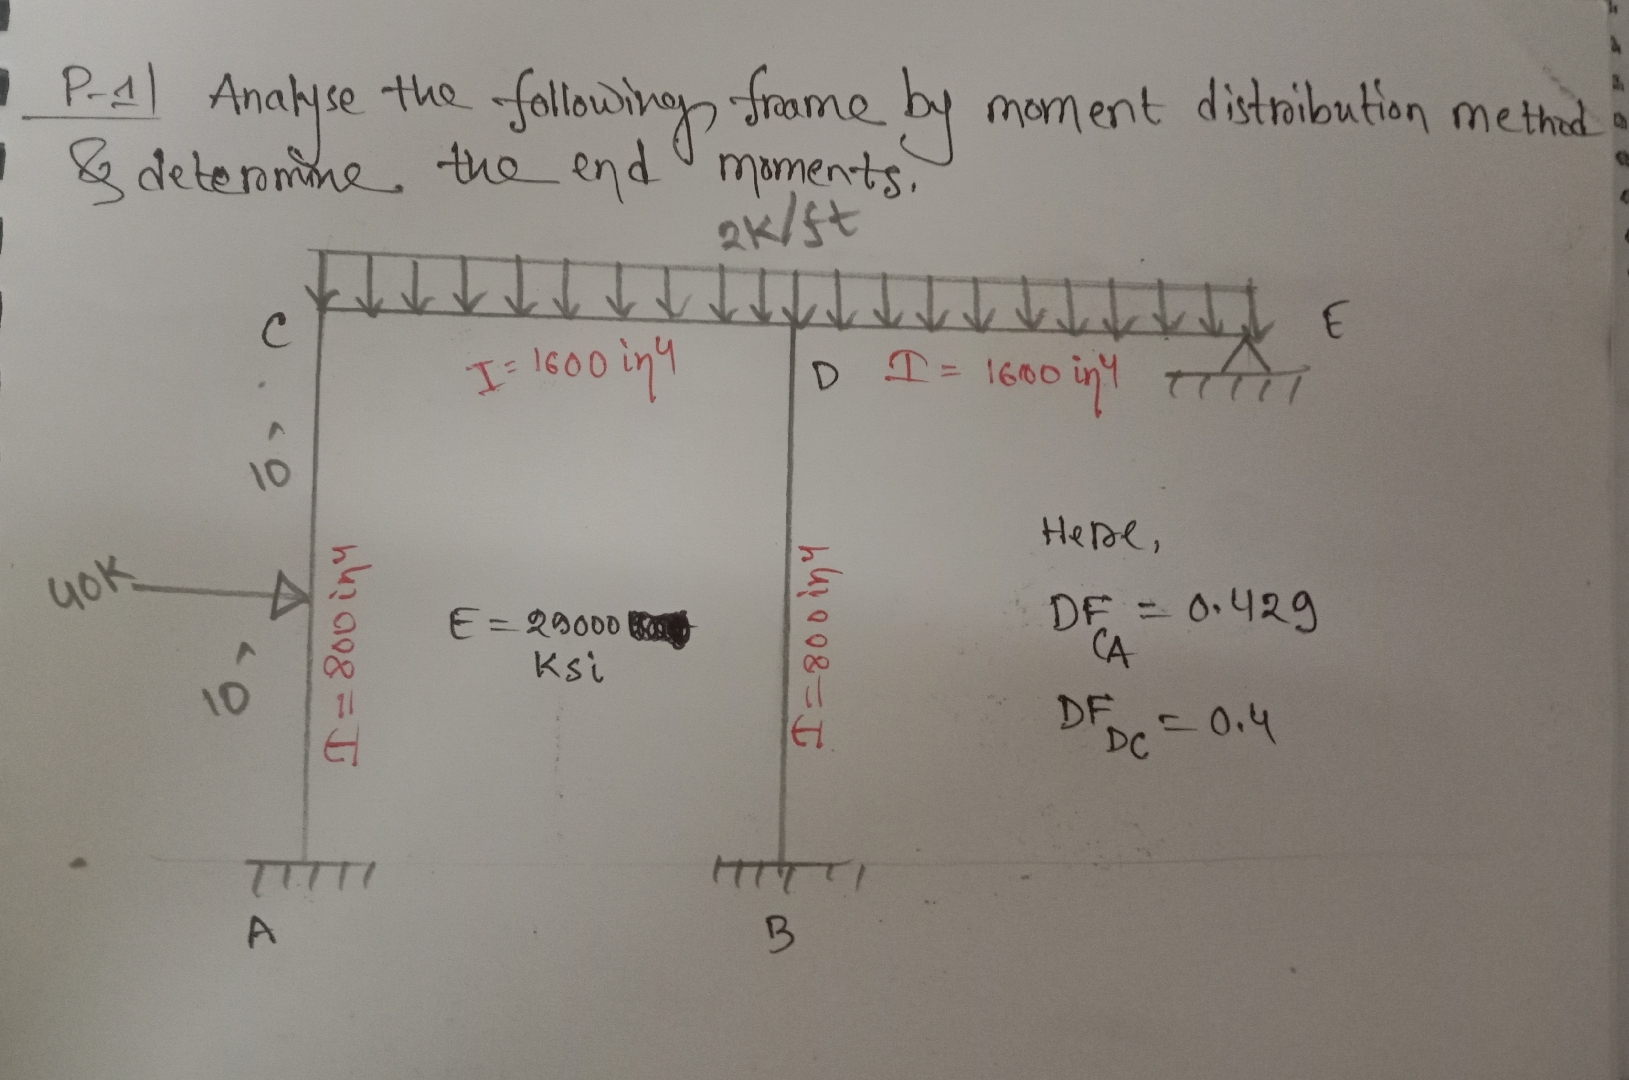 P-1| Analyse the following frame by moment distribution method
& determine the end moments.
2K/ft
C
E
I = 1600 in4
D
I = 1600 in4
10'
40K
10'
I = 800 in4
E = 29000
Ksi
I = 800 in4
Here,
DF CA = 0.429
DF DC = 0.4
A
B